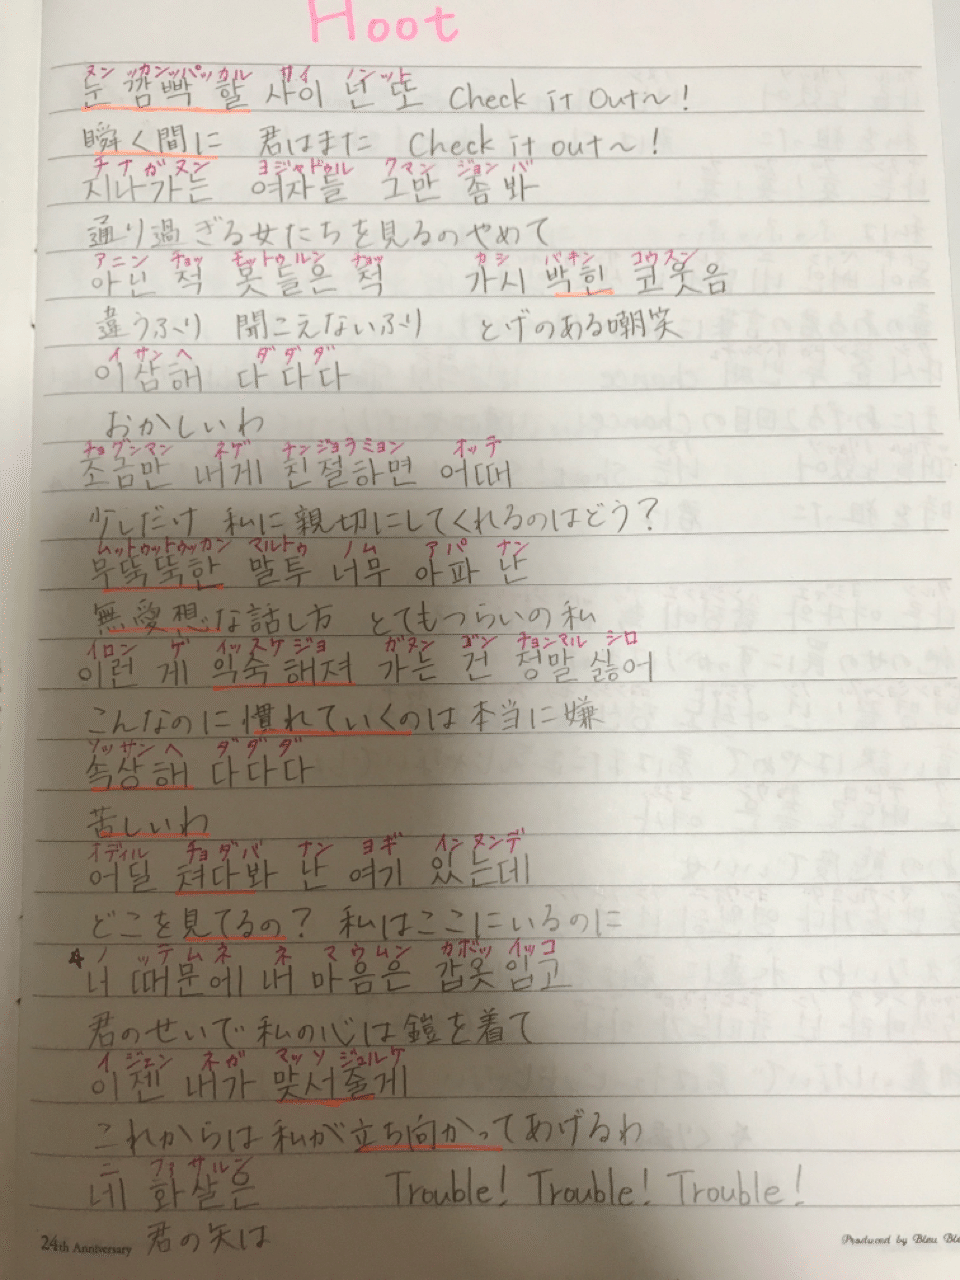 Hoot
ヌン ッカンッパッ カル サイ ノン ット
눈 깜빡 할 사이 넌 또 Check it Out~!
瞬く間に 君はまた Check it out~!
チナガヌン ヨジャドゥル クマン ジョン バ
지나가는 여자들 그만 좀 봐
通り過ぎる女たちを見るのやめて
アニン チョッ モットゥルン チョッ カシ バキン コウスン
아닌 척 못들은 척 가시 박힌 코웃음
違うふり 聞こえないふり とげのある嘲笑
イサンヘ ダダダ
이상해 다다다
おかしいわ
チョグンマン ネゲ チンジョラミョン オッテ
조금만 내게 친절하면 어때
少しだけ 私に親切にしてくれるのはどう?
ムットゥットゥッカン マルトゥ ノム アパ ナン
무뚝뚝한 말투 너무 아파 난
無愛想な話し方 とてもつらいの私
イロン ゲ イッスケジョ ガヌン ゴン チョンマル シロ
이런 게 익숙해져 가는 건 정말 싫어
こんなのに慣れていくのは本当に嫌
ソッサンヘ ダダダ
속상해 다다다
苦しいわ
イディル チョダバ ナン ヨギ インヌンデ
어딜 쳐다봐 난 여기 있는데
どこを見てるの? 私はここにいるのに
ノ ッテムネ ネ マウムン カボッ イッコ
너 때문에 내 마음은 갑옷 입고
君のせいで 私の心は鎧を着て
イジェン ネガ マッソジュルケ
이젠 내가 맞서줄게
これからは 私が立ち向かってあげるわ
ニ ファサルン
네 화살은 Trouble! Trouble! Trouble!
君の矢は
24th Anniversary
Produced by Bleu Ble